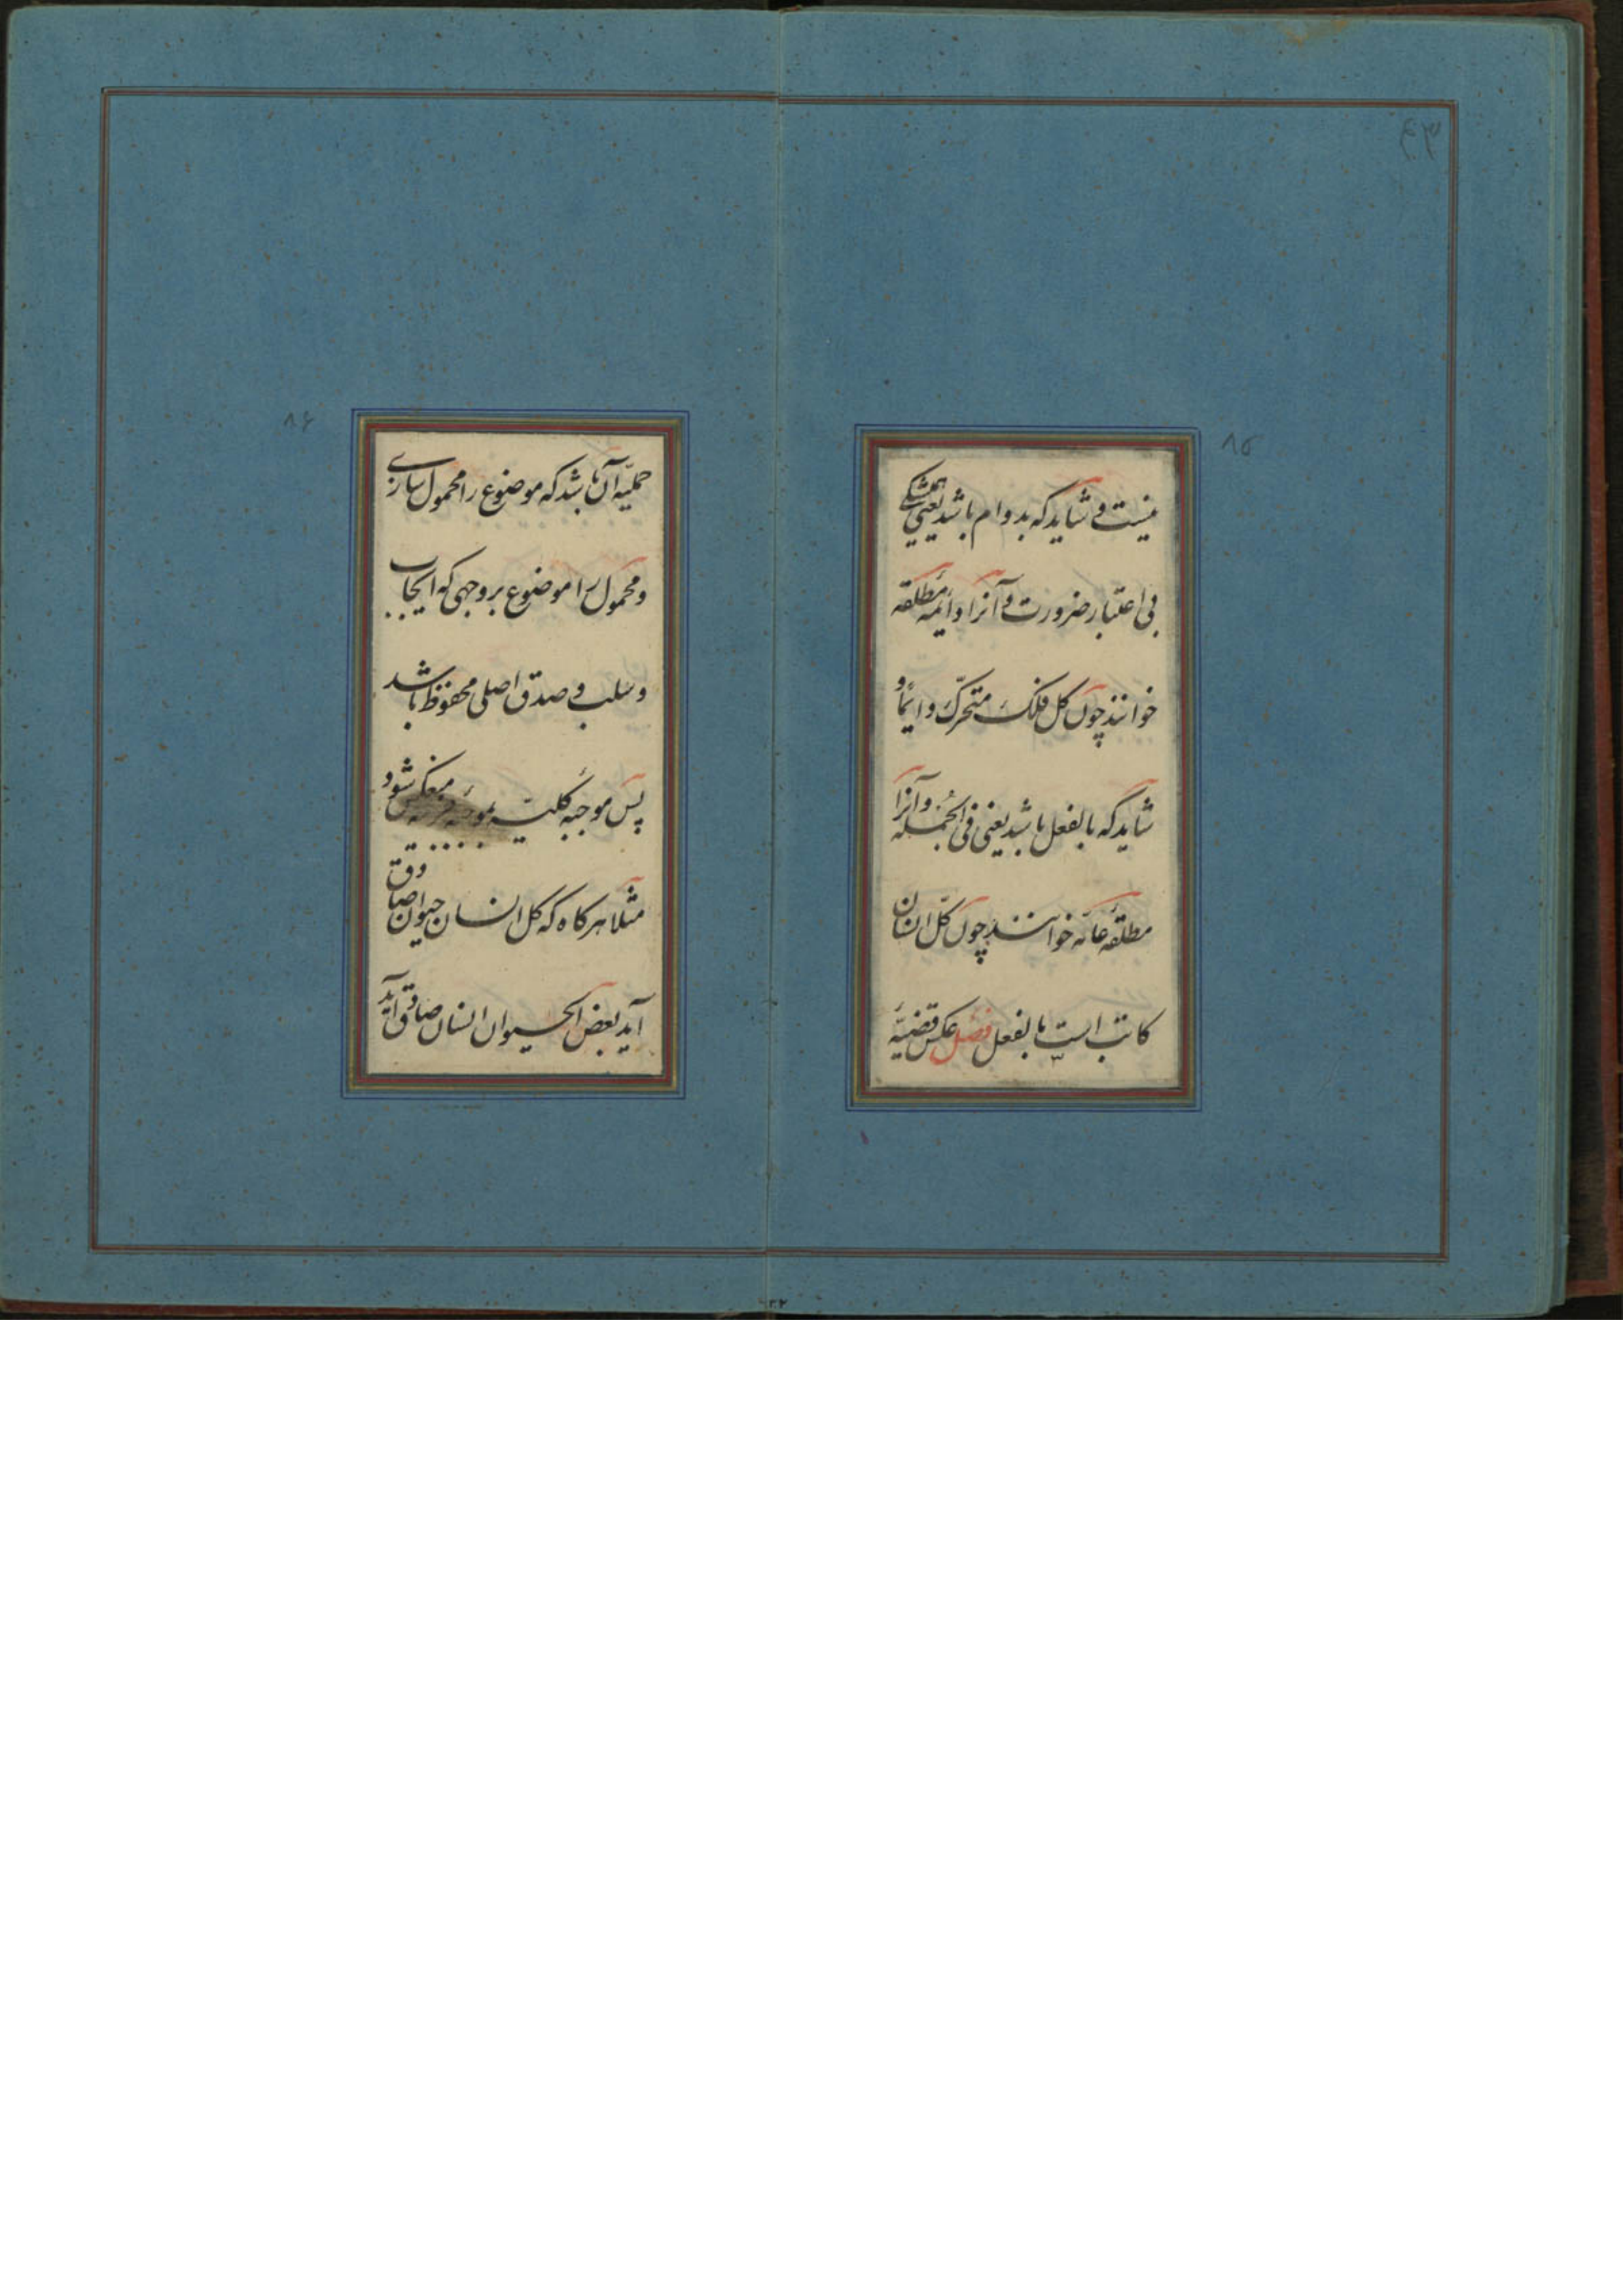 نیست و شاید که بدوام باشد یعنی همیشگی
بی اعتبار ضرورت و آنرا دائمه مطلقه
خوانند چون کل فلک متحرک دائما و
شاید که بالفعل باشد یعنی فی الجمله و آنرا
مطلقه عامه خوانند چون کل انسان
کاتب است بالفعل فصل عکس قضیه
۸۵
حملیه آن باشد که موضوع را محمول سازی
و محمول را موضوع بر وجهی که ایجاب
و سلب و صدق اصلی محفوظ باشد
پس موجبه کلیه بموجبه جزئیه منعکس شود
مثلا هر کاه که کل انسان حیوان صادق
آید بعض الحیوان انسان صادق آید
۸۶